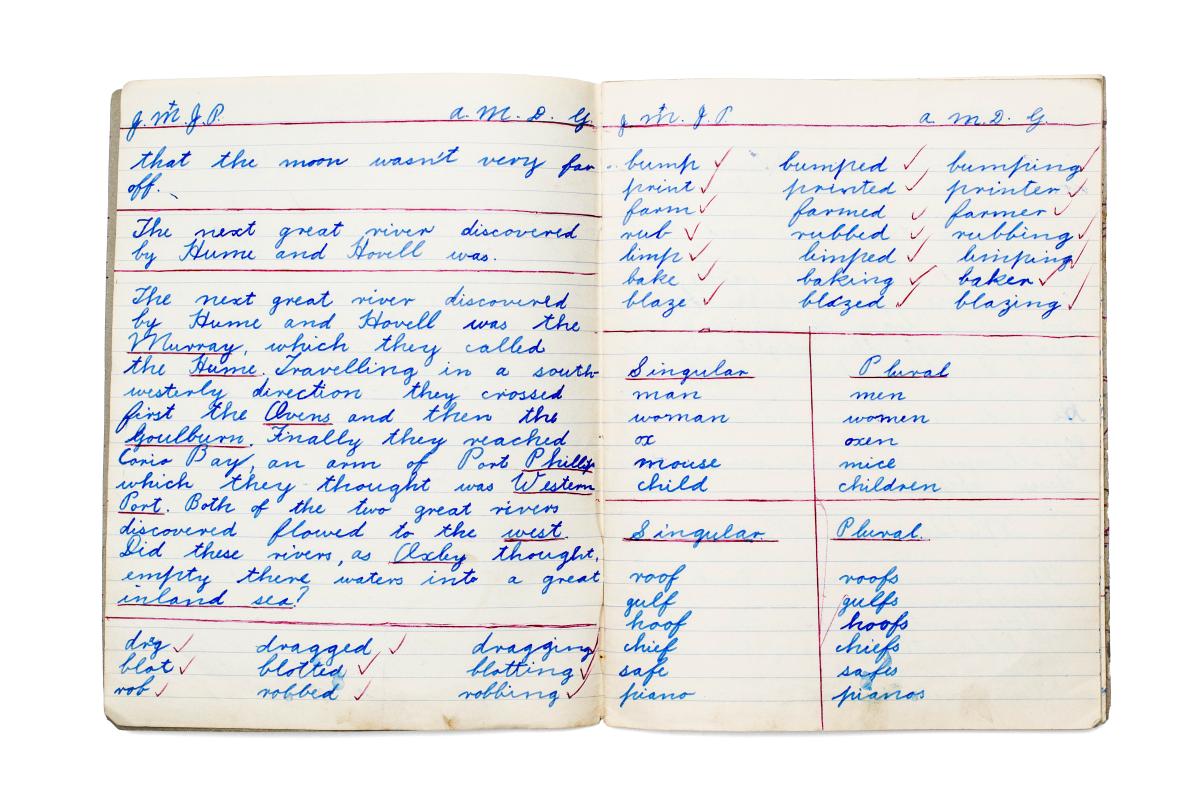 J. M. J. P. A. M. D. G.
that the moon wasn't very far
off.
The next great river discovered
by Hume and Hovell was.
The next great river discovered
by Hume and Hovell was the
Murray, which they called
the Hume. Travelling in a south-
westerly direction they crossed
first the Ovens and then the
Goulburn. Finally they reached
Corio Bay, an arm of Port Phillip
which they thought was Western
Port. Both of the two great rivers
discovered flowed to the west.
Did these rivers, as Oxley thought,
empty there waters into a great
inland sea?
drag dragged dragging
blot blotted blotting
rob robbed robbing
J. M. J. P A M. D. G
bump bumped bumping
print printed printer
farm farmed farmer
rub rubbed rubbing
limp limped limping
bake baking baker
blaze blazed blazing
Singular Plural
man men
woman women
ox oxen
mouse mice
child children
Singular Plural.
roof roofs
gulf gulfs
hoof hoofs
chief chiefs
safe safes
piano pianos